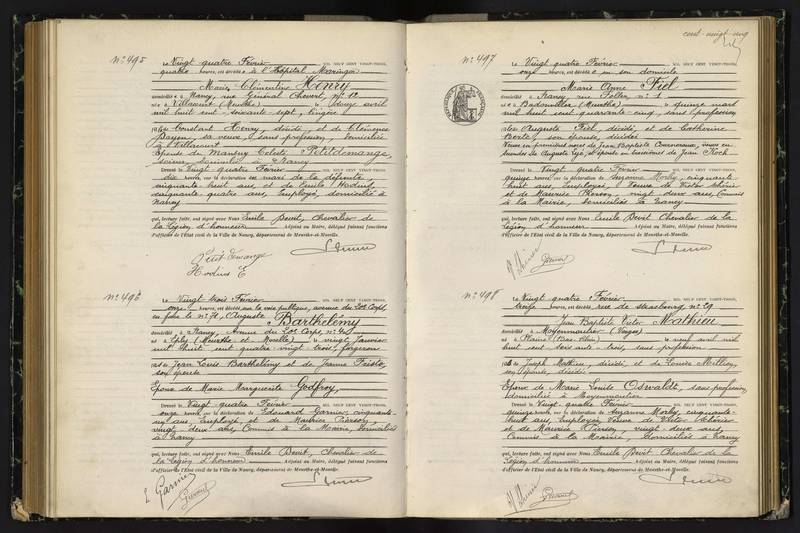 N° 495
Le Vingt quatre Février MIL NEUF CENT VINGT-TROIS,
quatre heures, est décédée à l'Hôpital
Marie Clémentine Henry
domiciliée à Nancy, rue Général Chevert, n° 12
née à Villacourt (Meurthe) le douze avril
mil huit cent soixante sept, lingère,
de Constant Henry, décédé, et de Clémence
sa veuve, sans profession, domiciliée
à Villacourt
Epouse de Petitdemange,
domicilié à Nancy
Dressé le Vingt quatre Février
dix heures sur la déclaration du mari de la défunte,
cinquante huit ans, et de Emile Hodins,
cinquante quatre ans, Employé, domiciliés à
Nancy
qui, lecture faite, ont signé avec Nous Emile Devit, Chevalier de
la Légion d'honneur Adjoint au Maire, délégué faisant fonctions
d'officier de l'État civil de la Ville de Nancy, département de Meurthe-et-Moselle.
Petitdemange
Hodins E
N° 496
Le Vingt trois Février MIL NEUF CENT VINGT-TROIS,
onze heures, est décédé, sur la voie publique, avenue du XXe Corps,
en face le n° Auguste Barthélémy
domicilié à Nancy, Avenue du XXe Corps, n°
né à Eply (Meurthe et Moselle) le vingt Janvier
mil huit cent quatre vingt trois, forgeron
de Jean Louis Barthélémy et de Jeanne
son épouse
Epoux de Marie Marguerite Godfroy,
Dressé le Vingt quatre Février
onze heures sur la déclaration de Edouard Garnier, cinquante-
un ans, Employé, et de Maurice Pierson,
vingt deux ans, Commis à la Mairie, domiciliés
à Nancy
qui, lecture faite, ont signé avec Nous Emile Devit, Chevalier de
la Légion d'honneur Adjoint au Maire, délégué faisant fonctions
d'officier de l'État civil de la Ville de Nancy, département de Meurthe-et-Moselle.
E Garnier
cent-vingt-cinq
N° 497
Le Vingt quatre Février MIL NEUF CENT VINGT-TROIS,
onze heures, est décédée en son domicile
Marie Anne Fiel
domiciliée à Nancy, rue n° 1
née à (Meurthe) le quinze mars
mil huit cent quarante cinq, sans profession
de Auguste Fiel, décédé, et de Catherine
son épouse, décédée
Veuve en premières noces de Jean Baptiste veuve en
secondes de Auguste et épouse en troisièmes de Jean Koch
Dressé le Vingt quatre Février
quinze heures sur la déclaration de Suzanne Morby, cinquante
huit ans, Employée, Veuve de Victor
et de Maurice Pierson, vingt deux ans, Commis
à la Mairie, domiciliés à Nancy
qui, lecture faite, ont signé avec Nous Emile Devit Chevalier de la
Légion d'honneur Adjoint au Maire, délégué faisant fonctions
d'officier de l'État civil de la Ville de Nancy, département de Meurthe-et-Moselle.
N° 498
Le Vingt quatre Février MIL NEUF CENT VINGT-TROIS,
treize heures, est décédé, rue de Strasbourg n° 29
Jean Baptiste Victor Mathieu
domicilié à Moyenmoutier (Vosges)
né à Plaine (Bas-Rhin) le neuf avril mil
huit cent soixante trois, sans profession
de Joseph Mathieu, décédé, et de Louise
son épouse, décédée
Epoux de Marie Louise Oswald, sans profession,
domiciliée à Moyenmoutier
Dressé le Vingt quatre Février
quinze heures sur la déclaration de Suzanne Morby, cinquante-
huit ans, Employée, Veuve de Victor
et de Maurice Pierson, vingt deux ans,
Commis à la Mairie, domiciliés à Nancy
qui, lecture faite, ont signé avec Nous Emile Devit Chevalier de la
Légion d'honneur Adjoint au Maire, délégué faisant fonctions
d'officier de l'État civil de la Ville de Nancy, département de Meurthe-et-Moselle.